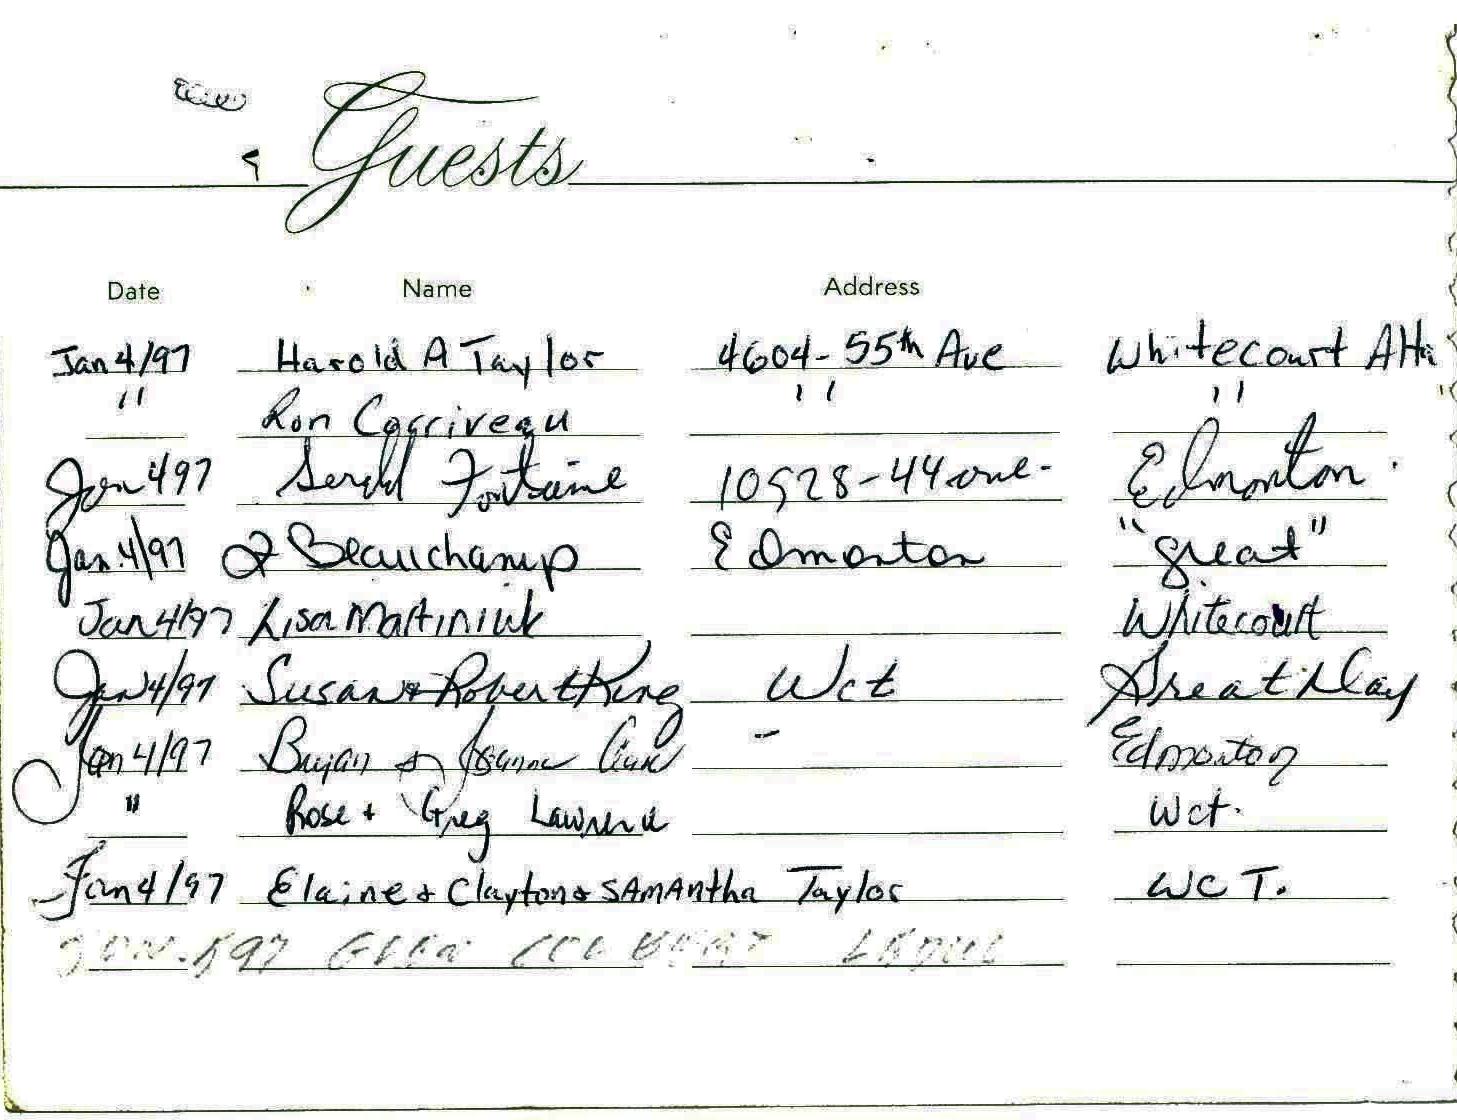 Guests
Date Name Address
Jan 4/97 Harold A Taylor 4604-55th Ave Whitecourt Alta
" Ron Corriveau " "
Jan 4 97 Gerald Fontaine 10528-44 ave. Edmonton.
Jan. 4/97 Beauchamp Edmonton "great"
Jan 4/97 Lisa Martiniuk Whitecourt
Jan 4/97 Susan & Robert King Wct Great Day
Jan 4/97 Bryan & Joanne - Edmonton
" Rose + Greg Lawrence Wct.
Jan 4/97 Elaine & Clayton & SAMANtha Taylor WCT.
JAN. 5 97 GLEN LEDUC